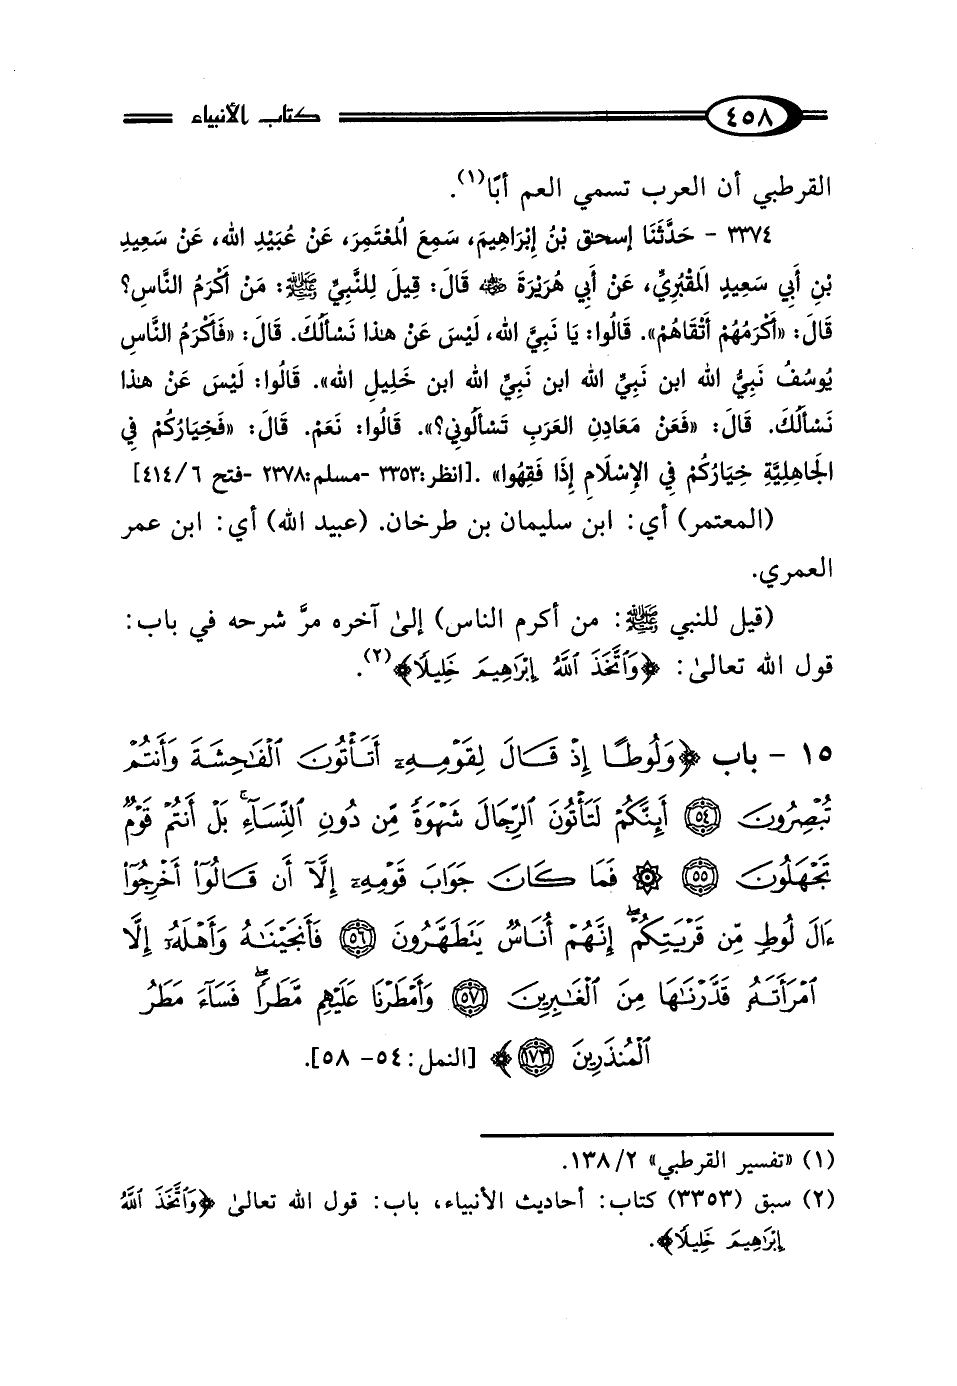 ٤٥٨ كتاب الأنبياء
القرطبي أن العرب تسمي العم أبًا(١).
٣٣٧٤ - حَدَّثَنَا إسحاق بْنُ إِبْرَاهِيمَ، سَمِعَ الُمعْتَمِرَ، عَنْ عُبَيْدِ الله، عَنْ سَعِيدِ
بْنِ أَبِي سَعِيدٍ الَمقْبُرِيِّ، عَنْ أَبِي هُرَيْرَةَ ﵁ قَالَ: قِيلَ لِلنَّبِيِّ ﷺ: مَنْ أَكْرَمُ النَّاسِ؟
قَالَ: «أَكْرَمُهُمْ أَتْقَاهُمْ». قَالُوا: يَا نَبِيَّ الله، لَيْسَ عَنْ هذا نَسْأَلُكَ. قَالَ: «فَأَكْرَمُ النَّاسِ
يُوسُفُ نَبِيُّ الله ابن نَبِيِّ الله ابن نَبِيِّ الله ابن خَلِيلِ الله». قَالُوا: لَيْسَ عَنْ هذا
نَسْأَلُكَ. قَالَ: «فَعَنْ مَعَادِنِ العَرَبِ تَسْأَلُونِي؟». قَالُوا: نَعَمْ. قَالَ: «فَخِيَارُكُمْ فِي
الَجاهِلِيَّةِ خِيَارُكُمْ فِي الإِسْلَامِ إِذَا فَقِهُوا» .[انظر:٣٣٥٣ -مسلم:٢٣٧٨ -فتح ٦/ ٤١٤]
(المعتمر) أي: ابن سليمان بن طرخان. (عبيد الله) أي: ابن عمر
العمري.
(قيل للنبي ﷺ: من أكرم الناس) إلىٰ آخره مرَّ شرحه في باب:
قول الله تعالىٰ: ﴿وَٱتَّخَذَ ٱللَّهُ إِبْرَٰهِيمَ خَلِيلًا﴾(٢).
١٥ - باب ﴿وَلُوطًا إِذْ قَالَ لِقَوْمِهِۦٓ أَتَأْتُونَ ٱلْفَٰحِشَةَ وَأَنتُمْ
تُبْصِرُونَ ٥٤ أَئِنَّكُمْ لَتَأْتُونَ ٱلرِّجَالَ شَهْوَةً مِّن دُونِ ٱلنِّسَآءِ ۚ بَلْ أَنتُمْ قَوْمٌ
تَجْهَلُونَ ٥٥ ۞ فَمَا كَانَ جَوَابَ قَوْمِهِۦٓ إِلَّآ أَن قَالُوٓا۟ أَخْرِجُوٓا۟
ءَالَ لُوطٍ مِّن قَرْيَتِكُمْ ۖ إِنَّهُمْ أُنَاسٌ يَتَطَهَّرُونَ ٥٦ فَأَنجَيْنَٰهُ وَأَهْلَهُۥٓ إِلَّا
ٱمْرَأَتَهُۥ قَدَّرْنَٰهَا مِنَ ٱلْغَٰبِرِينَ ٥٧ وَأَمْطَرْنَا عَلَيْهِم مَّطَرًا ۖ فَسَآءَ مَطَرُ
ٱلْمُنذَرِينَ ١٧٣﴾ [النمل:٥٤- ٥٨].
(١) «تفسير القرطبي» ٢/ ١٣٨.
(٢) سبق (٣٣٥٣) كتاب: أحاديث الأنبياء، باب: قول الله تعالىٰ ﴿وَٱتَّخَذَ ٱللَّهُ
إِبْرَٰهِيمَ خَلِيلًا﴾.